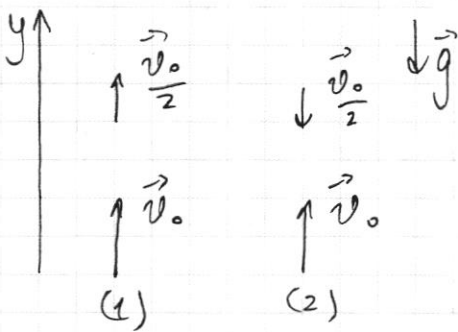 y
v⃗₀/2 v⃗₀/2 g⃗
v⃗₀ v⃗₀
(1) (2)